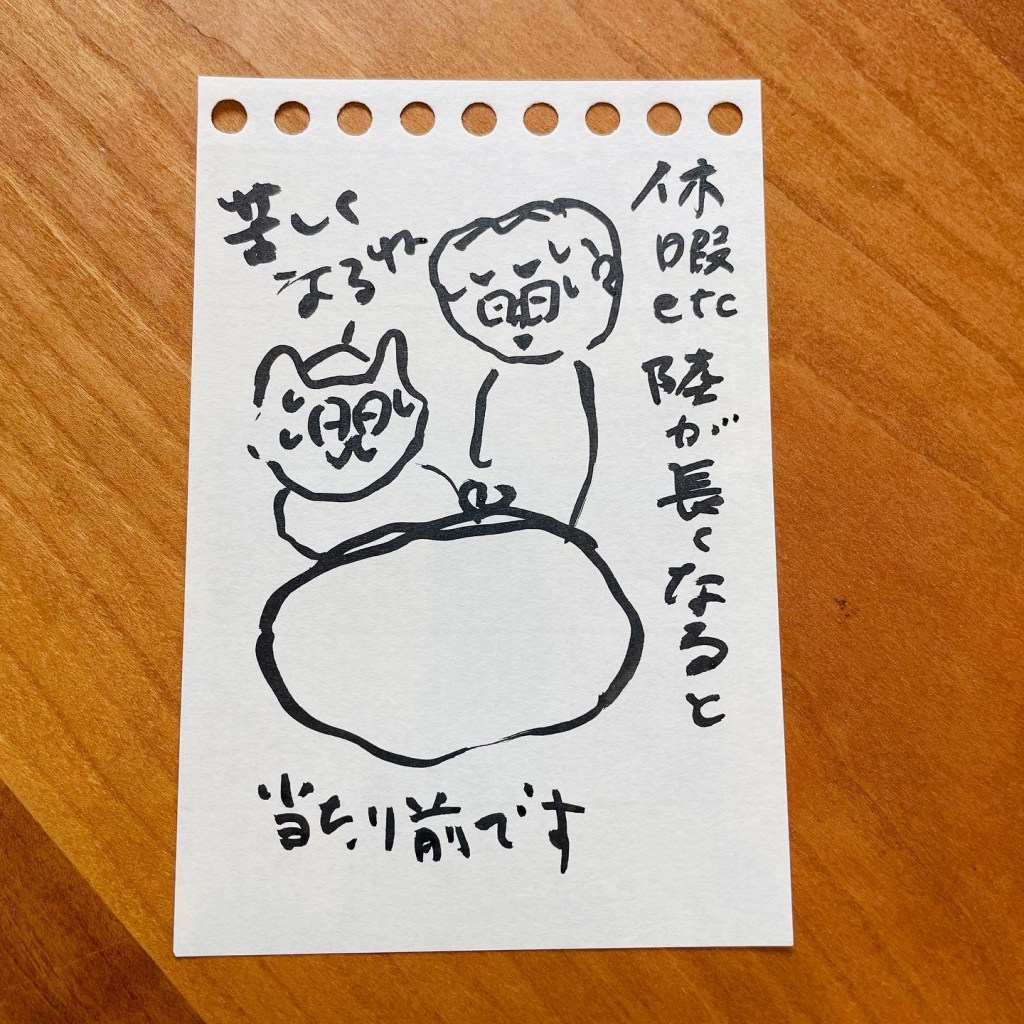 休暇
etc
陸が長くなると
苦しく
なるわ
当たり前です